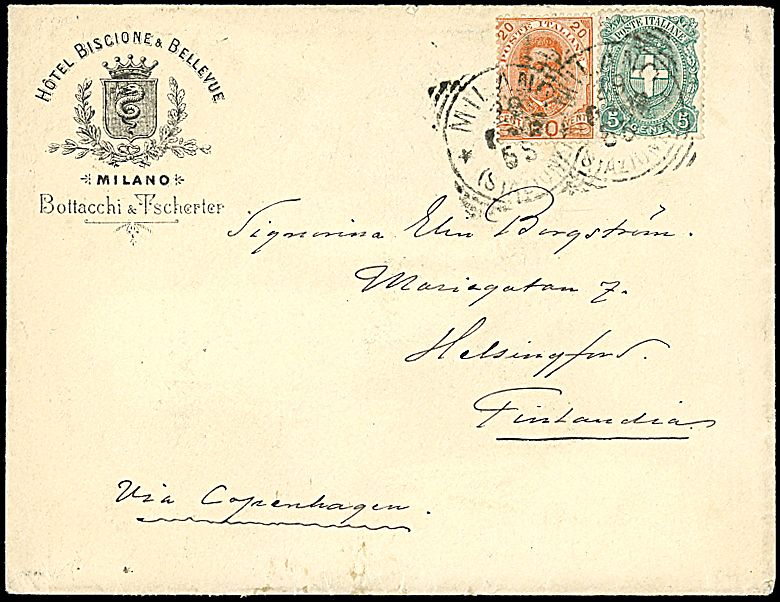 HÔTEL BISCIONE & BELLEVUE
MILANO
Bottacchi & Tscherter
20 20
POSTE ITALIANE
POSTE ITALIANE
5 CENT. 5
MILANO
(STAZIONE)
(STAZIONE)
Signorina Elin Borgström.
Mariegatan 7.
Helsingford.
Finlandia
Via Copenhagen.